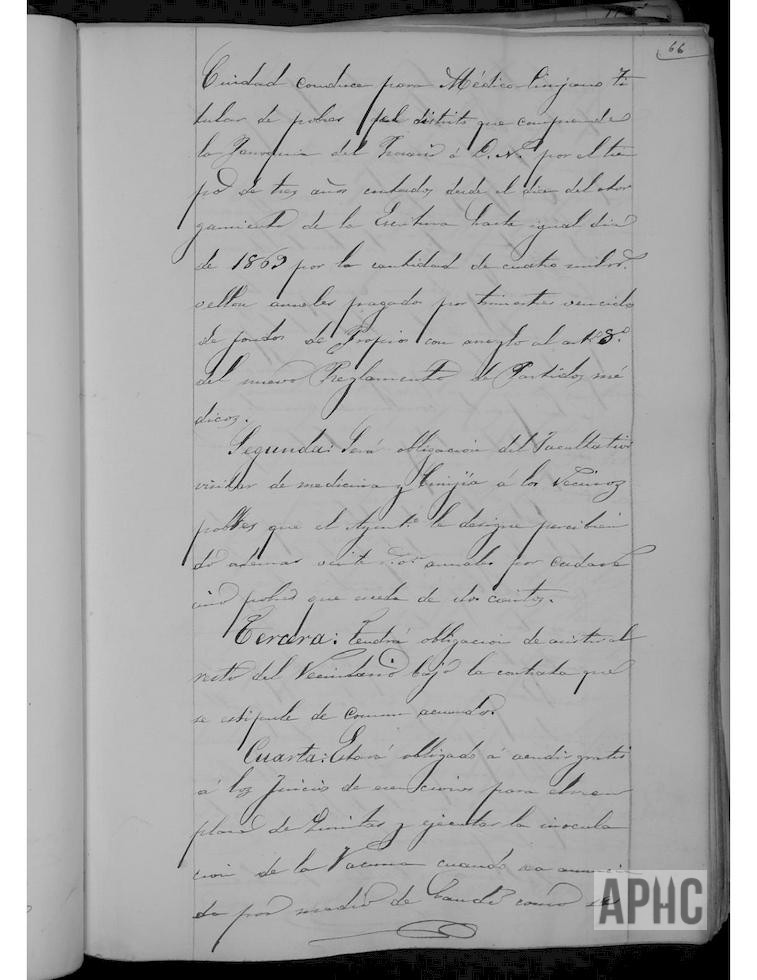 66
Ciudad conduce para Médico Cirujano Ti
tular de pobres del distrito que comprende
la Parroquia del á D. N. por el tiem
po de tres años contados desde el dia del otor
gamiento de la Escritura hasta igual dia
de 1869 por la cantidad de cuatro mil rs.
vellon anuales pagados por trimestres vencidos
de fondos de Propios con arreglo al art.º 8.º
del nuevo Reglamento de Partidos mé
dicos.
Segunda: Será obligacion del Facultativo
visitar de medicina y Cirujía á los Vecinos
pobres que el Ayunt.º le designe percibien
do ademas veinte r.s anuales por cada ve
cino pobre que esceda de dos cientos.
Tercera: Tendrá obligacion de asistir al
resto del Vecindario bajo la contrata que
se estipule de comun acuerdo.
Cuarta: Estará obligado á acudir gratis
á los Juicios de esenciones para el reem
plazo de Quintas y ejecutar la inocula
cion de la Vacuna cuando sea anuncia
da por medio de Bando como
APHC